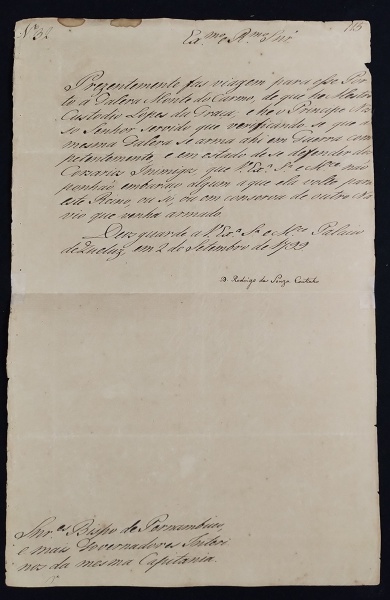 Nº 32
Ex.mo e R.mo Snr.
Prezentemente fas viagem para esse Por
to a Galera Monte do Carmo, de que he Mestre
Custodio Lopes da Graça, e he o Principe N.
So Senhor servido que verificando se que a
mesma Galera se arma ahi em Guerra com
petentemente, e em estado de se defender dos
Corsarios Inimigos que V. Ex.ª S.ª e M.ce não
ponhaõ embaraço algum a que ella volte para
este Reino, ou só, ou em conserva de outro Na
vio que venha armado.
Deos guarde a V. Ex.ª S.ª e M.ce Palacio
de Queluz em 2 de Setembro de 1799
D. Rodrigo de Souza Coutinho
Snr.es Bispo de Pernambuco,
e mais Governadores Interi
nos da mesma Capitania.